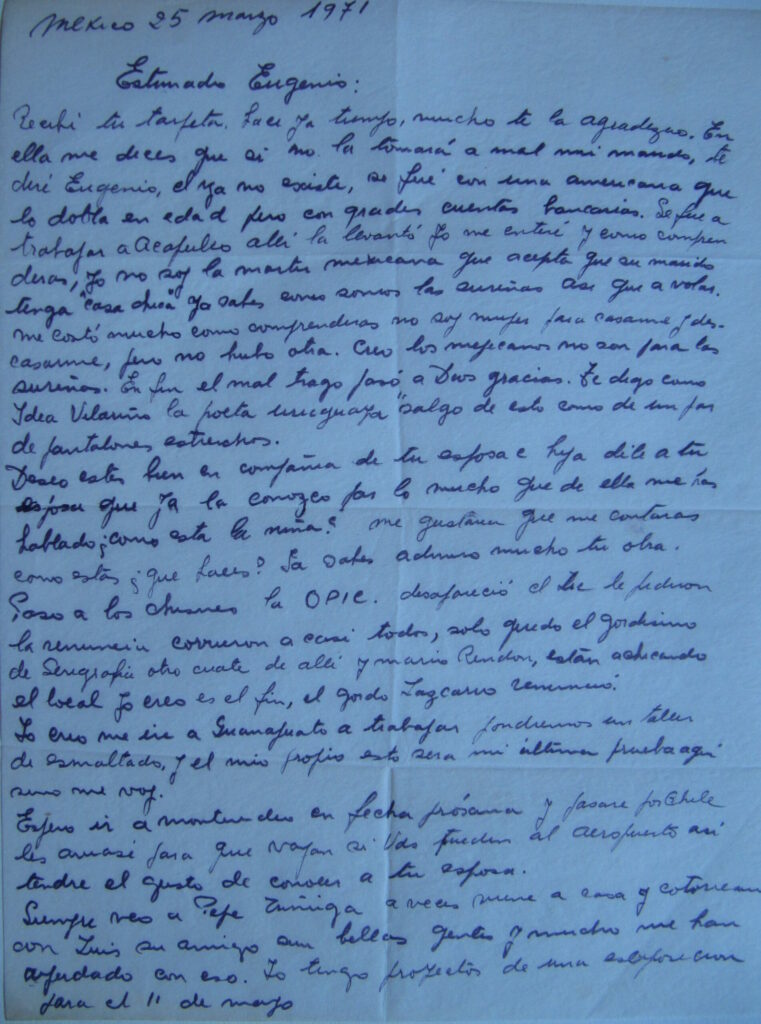 Mexico 25 marzo 1971
Estimado Eugenio:
Recibí tu tarjeta. hace ya tiempo, mucho te la agradezco. En
ella me dices que si no la tomará a mal mi marido, te
diré Eugenio, el ya no existe, se fué con una americana que
lo dobla en edad pero con grades cuentas bancarias. Se fue a
trabajar a Acapulco allí la levantó Yo me enteré y como compren
deras, yo no soy la martir mexicana que acepta que su marido
tenga "casa chica" ya sabes como somos las sureñas asi que a volar.
me costó mucho como comprenderas no soy mujer para casarme y des-
casarme, pero no hubo otra. Creo los mejicanos no son para las
sureñas. En fin el mal trago pasó a Dios gracias. Te digo como
Idea Vilariño la poeta uruguaya "salgo de esto como de un par
de pantalones estrechos.
Deseo estes bien en compañia de tu esposa e hija dile a tu
esposa que ya la conozco por lo mucho que de ella me has
hablado ¿como esta la niña? me gustaria que me contaras
como estás ¿que haces? Ya sabes admiro mucho tu obra.
Paso a los chismes la OPIC. desapareció el Lic le pidieron
la renuncia corrieron a casi todos, solo quedo el gordisimo
de Serigrafia otro cuate de alli y mario Rendon, están achicando
el local yo creo es el fin, el gordo Lazcarro renunció.
Yo creo me iré a Guanajuato a trabajar pondremos un taller
de esmaltado, y el mio propio esto sera mi última prueba aqui
sino me voy.
Espero ir a montevideo en fecha próxima y pasare por Chile
les avisaré para que vayan si Uds pueden al aeropuerto asi
tendre el gusto de conocer a tu esposa.
Siempre veo a Pepe Zuñiga a veces viene a casa y cotorreamos
con Luis su amigo son bellas gentes y mucho me han
ayudado con eso. Yo tengo proyectos de una exposicion
para el 11 de mayo